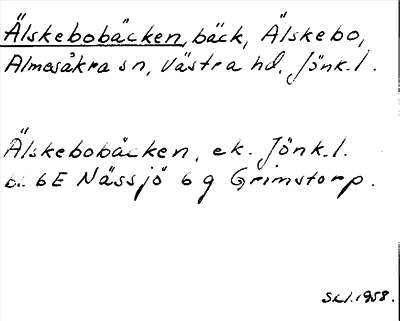 Älskebobäcken, bäck, Älskebo,
Almesåkra sn, Västra hd, Jönk. l.
Älskebobäcken, ek. Jönk. l.
bl. 6E Nässjö 6 g Grimstorp.
SKL. 1958.